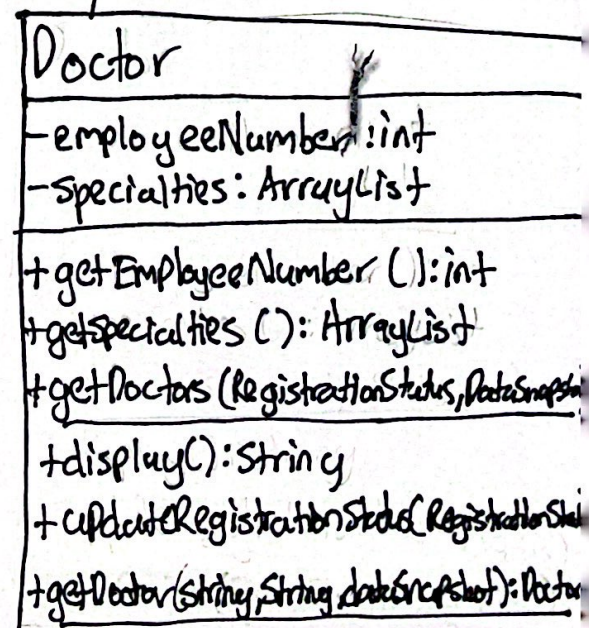 Doctor
-employeeNumber:int
-specialties: ArrayList
+getEmployeeNumber():int
+getSpecialties(): ArrayList
+getDoctors(RegistrationStatus,DataSnapsh
+display():String
+updateRegistrationStatus(RegistrationStat
+getDoctor(String,String,dataSnapshot):Doctor